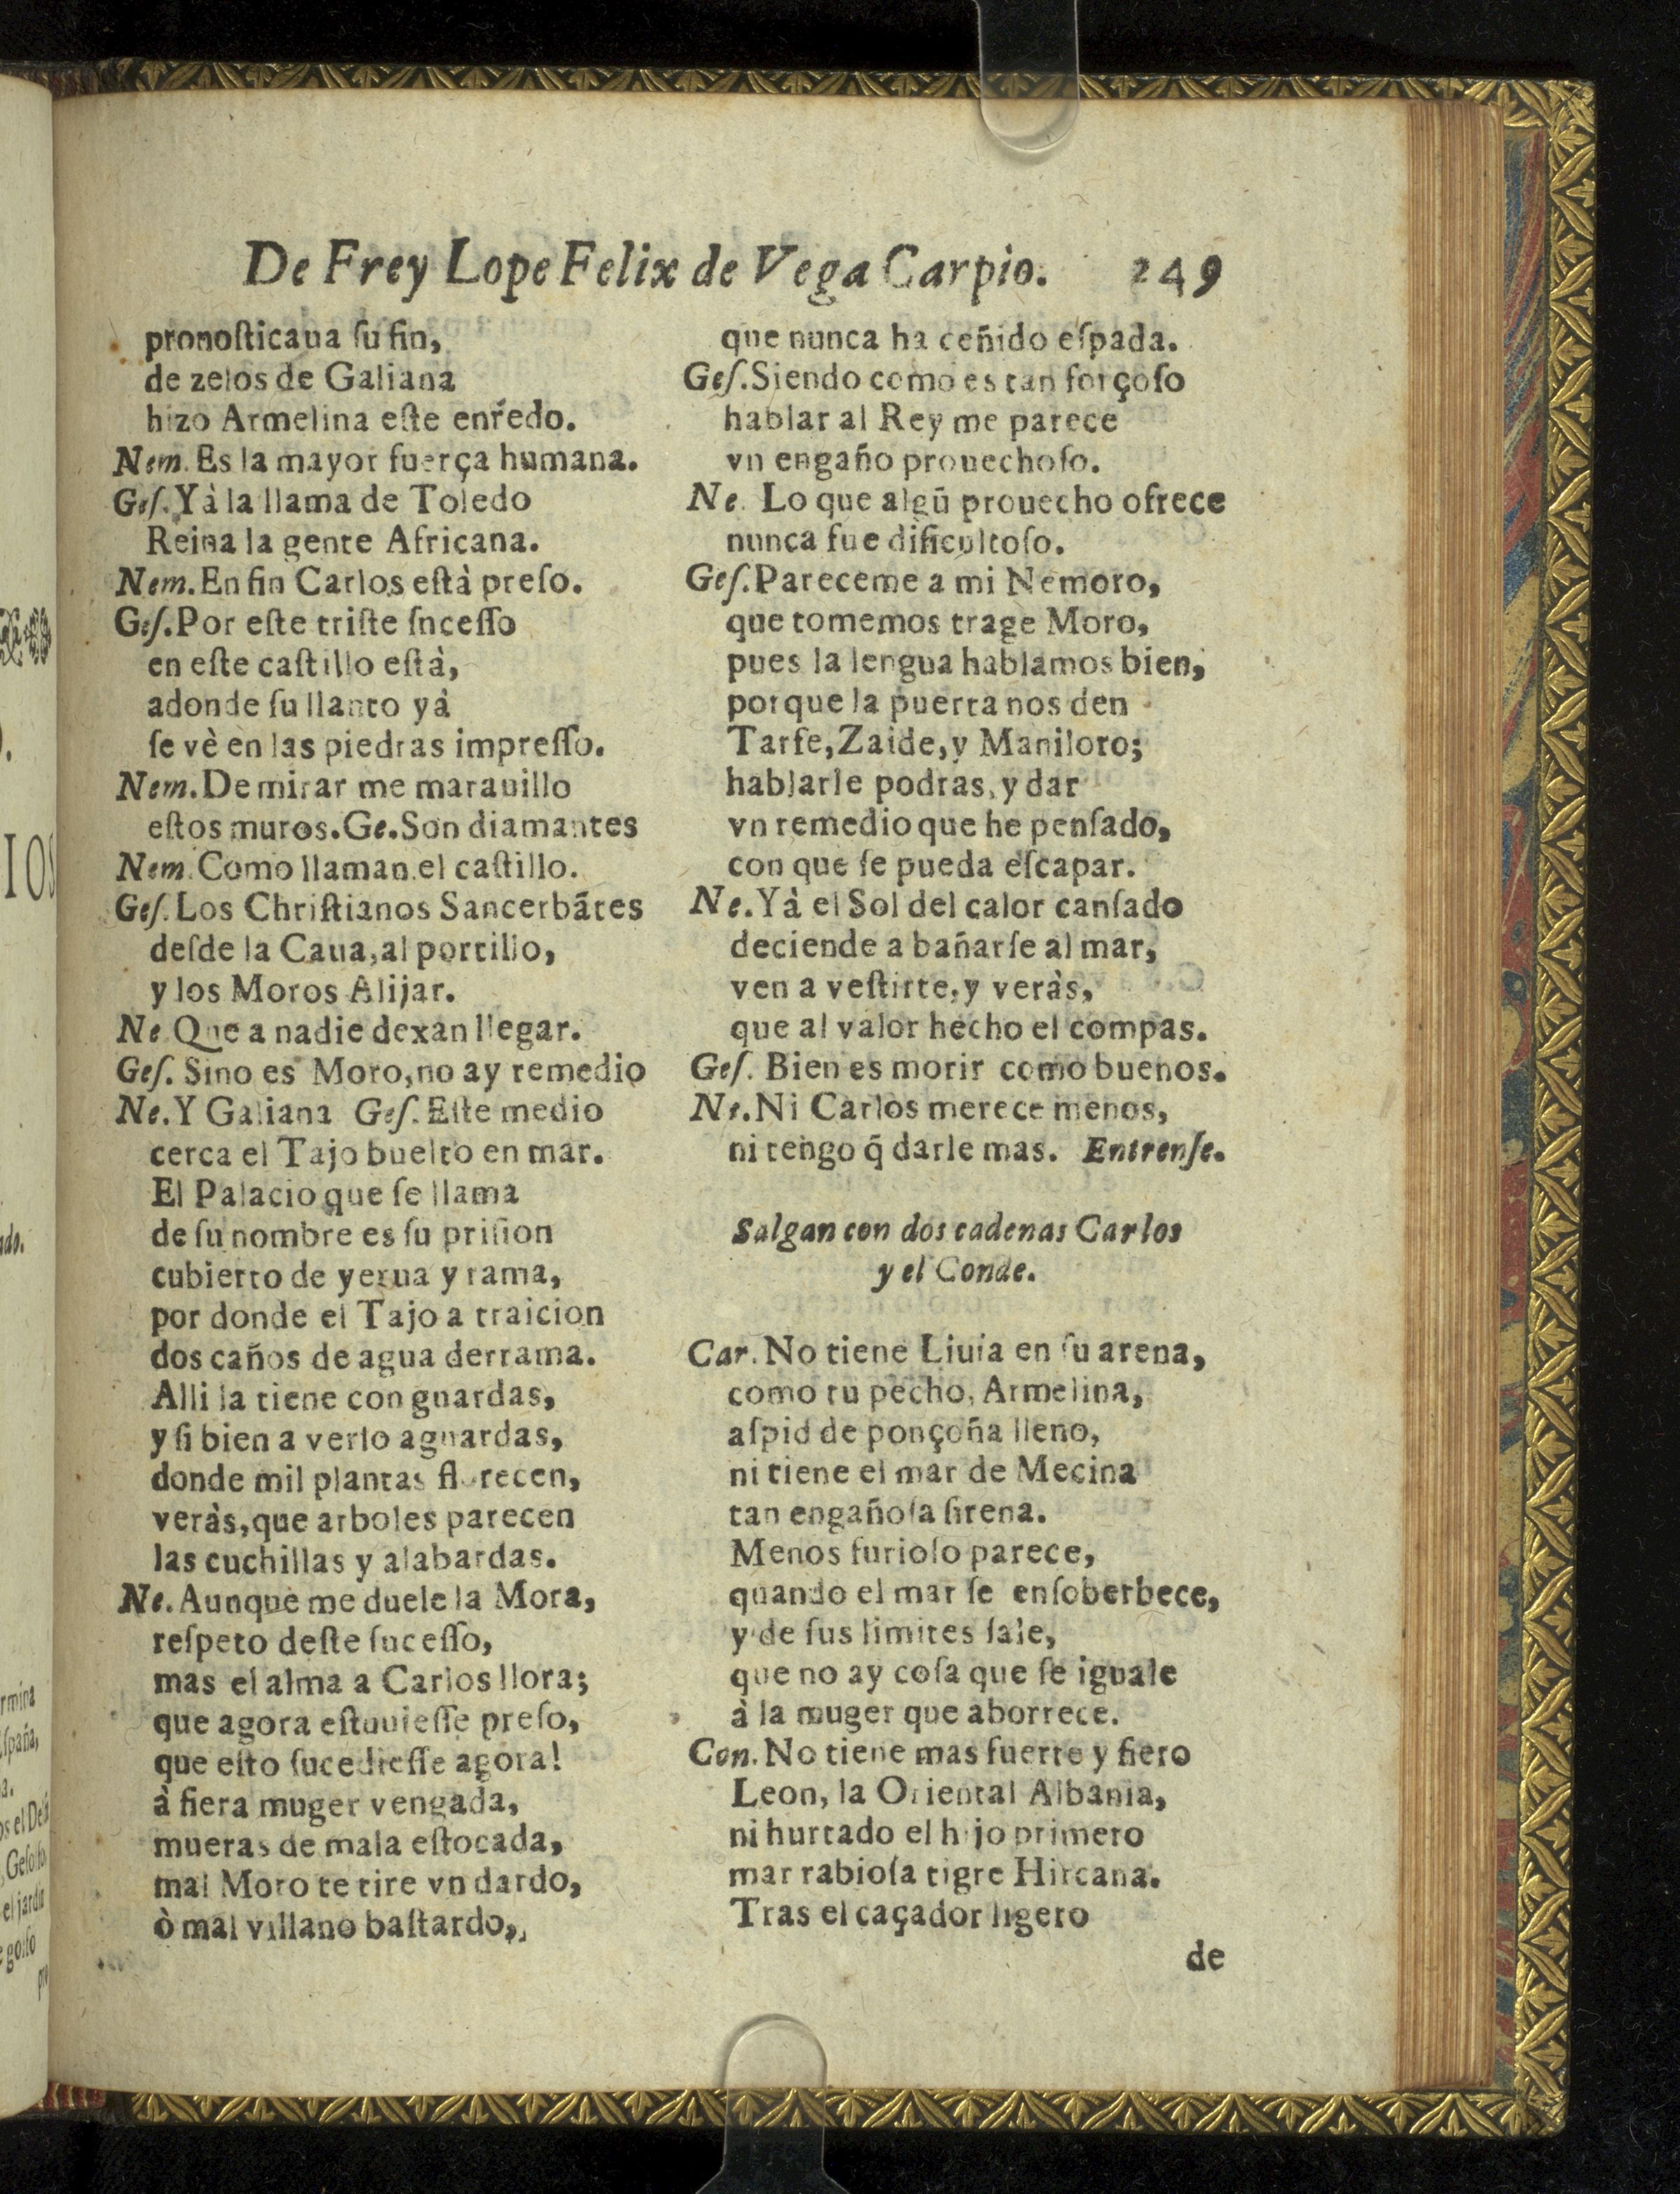 De Frey Lope Felix de Vega Carpio. 249
pronoſticaua ſu fin,
de zelos de Galiana
hizo Armelina eſte enredo.
Nem. Es la mayor fuerça humana.
Geſ. Yà la llama de Toledo
Reina la gente Africana.
Nem. En fin Carlos eſtà preſo.
Geſ. Por eſte triſte ſnceſſo
en eſte caſtillo eſtà,
adonde ſu llanto yà
ſe vè en las piedras impreſſo.
Nem. De mirar me marauillo
eſtos muros. Ge. Son diamantes
Nem. Como llaman el caſtillo.
Geſ. Los Chriſtianos Sancerbãtes
deſde la Caua, al portillo,
y los Moros Alijar.
Ne Que a nadie dexan llegar.
Geſ. Sino es Moro, no ay remedio
Ne. Y Galiana Geſ. Eſte medio
cerca el Tajo buelto en mar.
El Palacio que ſe llama
de ſu nombre es ſu priſion
cubierto de yerua y rama,
por donde el Tajo a traicion
dos caños de agua derrama.
Alli la tiene con guardas,
y ſi bien a verlo aguardas,
donde mil plantas florecen,
veràs, que arboles parecen
las cuchillas y alabardas.
Ne. Aunque me duele la Mora,
reſpeto deſte ſuceſſo,
mas el alma a Carlos llora;
que agora eſtuuieſſe preſo,
que eſto ſucedieſſe agora!
à fiera muger vengada,
mueras de mala eſtocada,
mal Moro te tire vn dardo,
ò mal villano baſtardo,
que nunca ha ceñido eſpada.
Geſ. Siendo como es tan forçoſo
hablar al Rey me parece
vn engaño prouechoſo.
Ne. Lo que algũ prouecho ofrece
nunca fue dificultoſo.
Geſ. Pareceme a mi Nemoro,
que tomemos trage Moro,
pues la lengua hablamos bien,
porque la puerta nos den
Tarfe, Zaide, y Maniloro;
hablarle podras, y dar
vn remedio que he penſado,
con que ſe pueda eſcapar.
Ne. Yà el Sol del calor canſado
deciende a bañarſe al mar,
ven a veſtirte, y veràs,
que al valor hecho el compas.
Geſ. Bien es morir como buenos.
Ne. Ni Carlos merece menos,
ni tengo q̃ darle mas. Entrenſe.
Salgan con dos cadenas Carlos
y el Conde.
Car. No tiene Liuia en ſu arena,
como tu pecho, Armelina,
aſpid de ponçoña lleno,
ni tiene el mar de Mecina
tan engañoſa ſirena.
Menos furioſo parece,
quando el mar ſe enſoberbece,
y de ſus limites ſale,
que no ay coſa que ſe iguale
à la muger que aborrece.
Con. No tiene mas fuerte y fiero
Leon, la Oriental Albania,
ni hurtado el hijo primero
mar rabioſa tigre Hircana.
Tras el caçador ligero
de